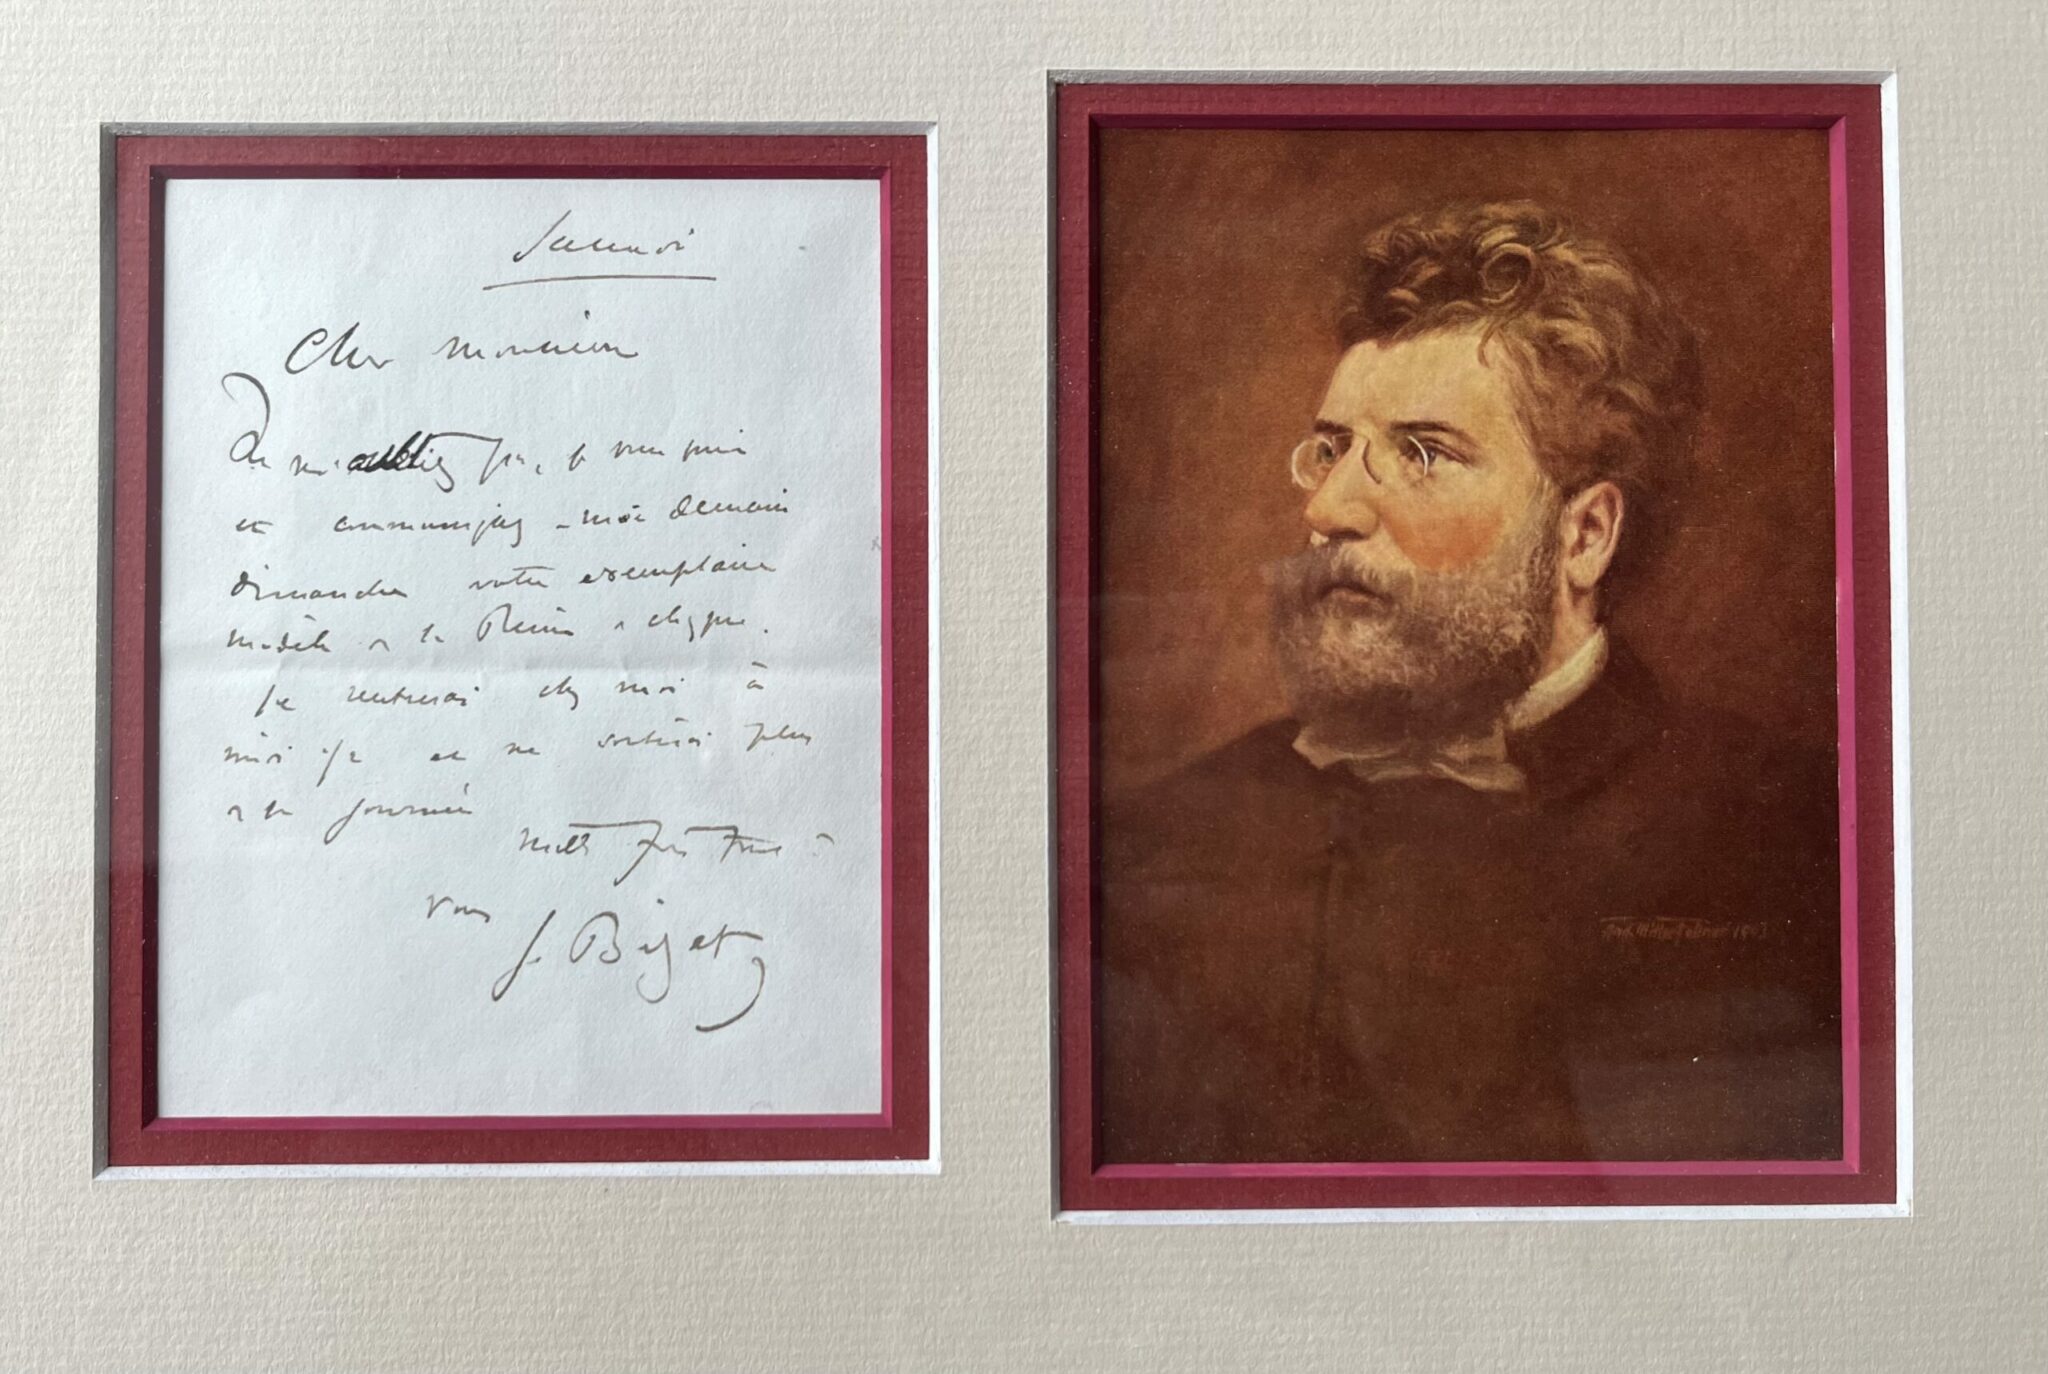 Samedi
Cher Monsieur
Ne m'oubliez pas, je vous prie
et communiquez-moi demain
dimanche votre exemplaire
modèle de la Reine de Chypre.
Je rentrerai chez moi à
midi 1/2 et ne sortirai plus
de la journée
Mille fois tout à
vous
G. Bizet
1903